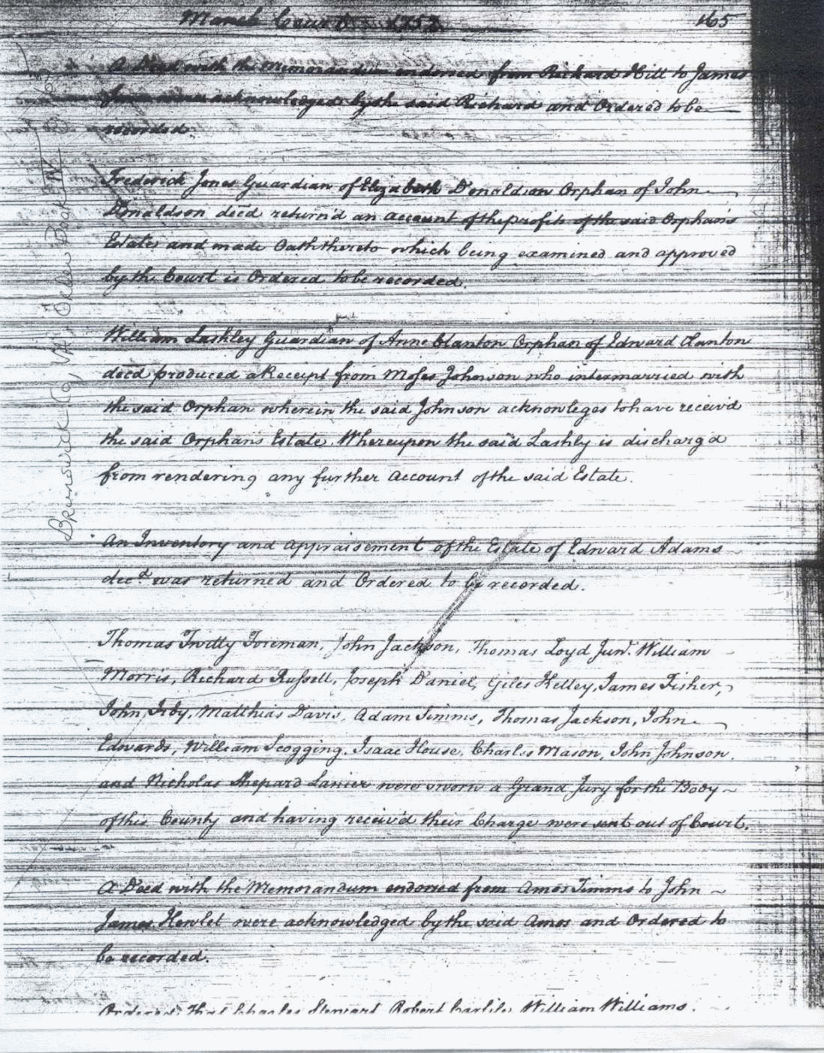 March Court 1753
165
A Deed with the Memorandum endorsed from Richard Hill to James
acknowledged by the said Richard and Ordered to be
recorded.
Frederick Jones Guardian of Elizabeth Donaldson Orphan of John
Donaldson decd return'd an account of the profits of the said Orphans
Estate and made Oath thereto which being examined and approved
by the Court is Ordered to be recorded.
William Lashley Guardian of Anne Clanton Orphan of Edward Clanton
decd produced a Receipt from Moses Johnson who intermarried with
the said Orphan wherein the said Johnson acknowleges to have receiv'd
the said Orphans Estate. Whereupon the said Lashly is discharg'd
from rendering any further Account of the said Estate.
An Inventory and appraisement of the Estate of Edward Adams
decd. was returned and Ordered to be recorded.
Thomas Twitty Foreman, John Jackson, Thomas Loyd Junr. William
Morris, Richard Russell, Joseph Daniel, Giles Kelley, James Fisher,
John Irby, Matthias Davis, Adam Simms, Thomas Jackson, John
Edwards, William Scogging, Isaac House, Charles Mason, John Johnson,
and Nicholas Shepard Lanier were sworn a Grand Jury for the Body
of this County and having receiv'd their Charge were sent out of Court.
A Deed with the Memorandum endorsed from Amos Timms to John
James Hewlet were acknowledged by the said Amos and Ordered to
be recorded.
Ordered That Charles Stewart Robert Carlile William Williams
Brunswick Co, VA. Order Book